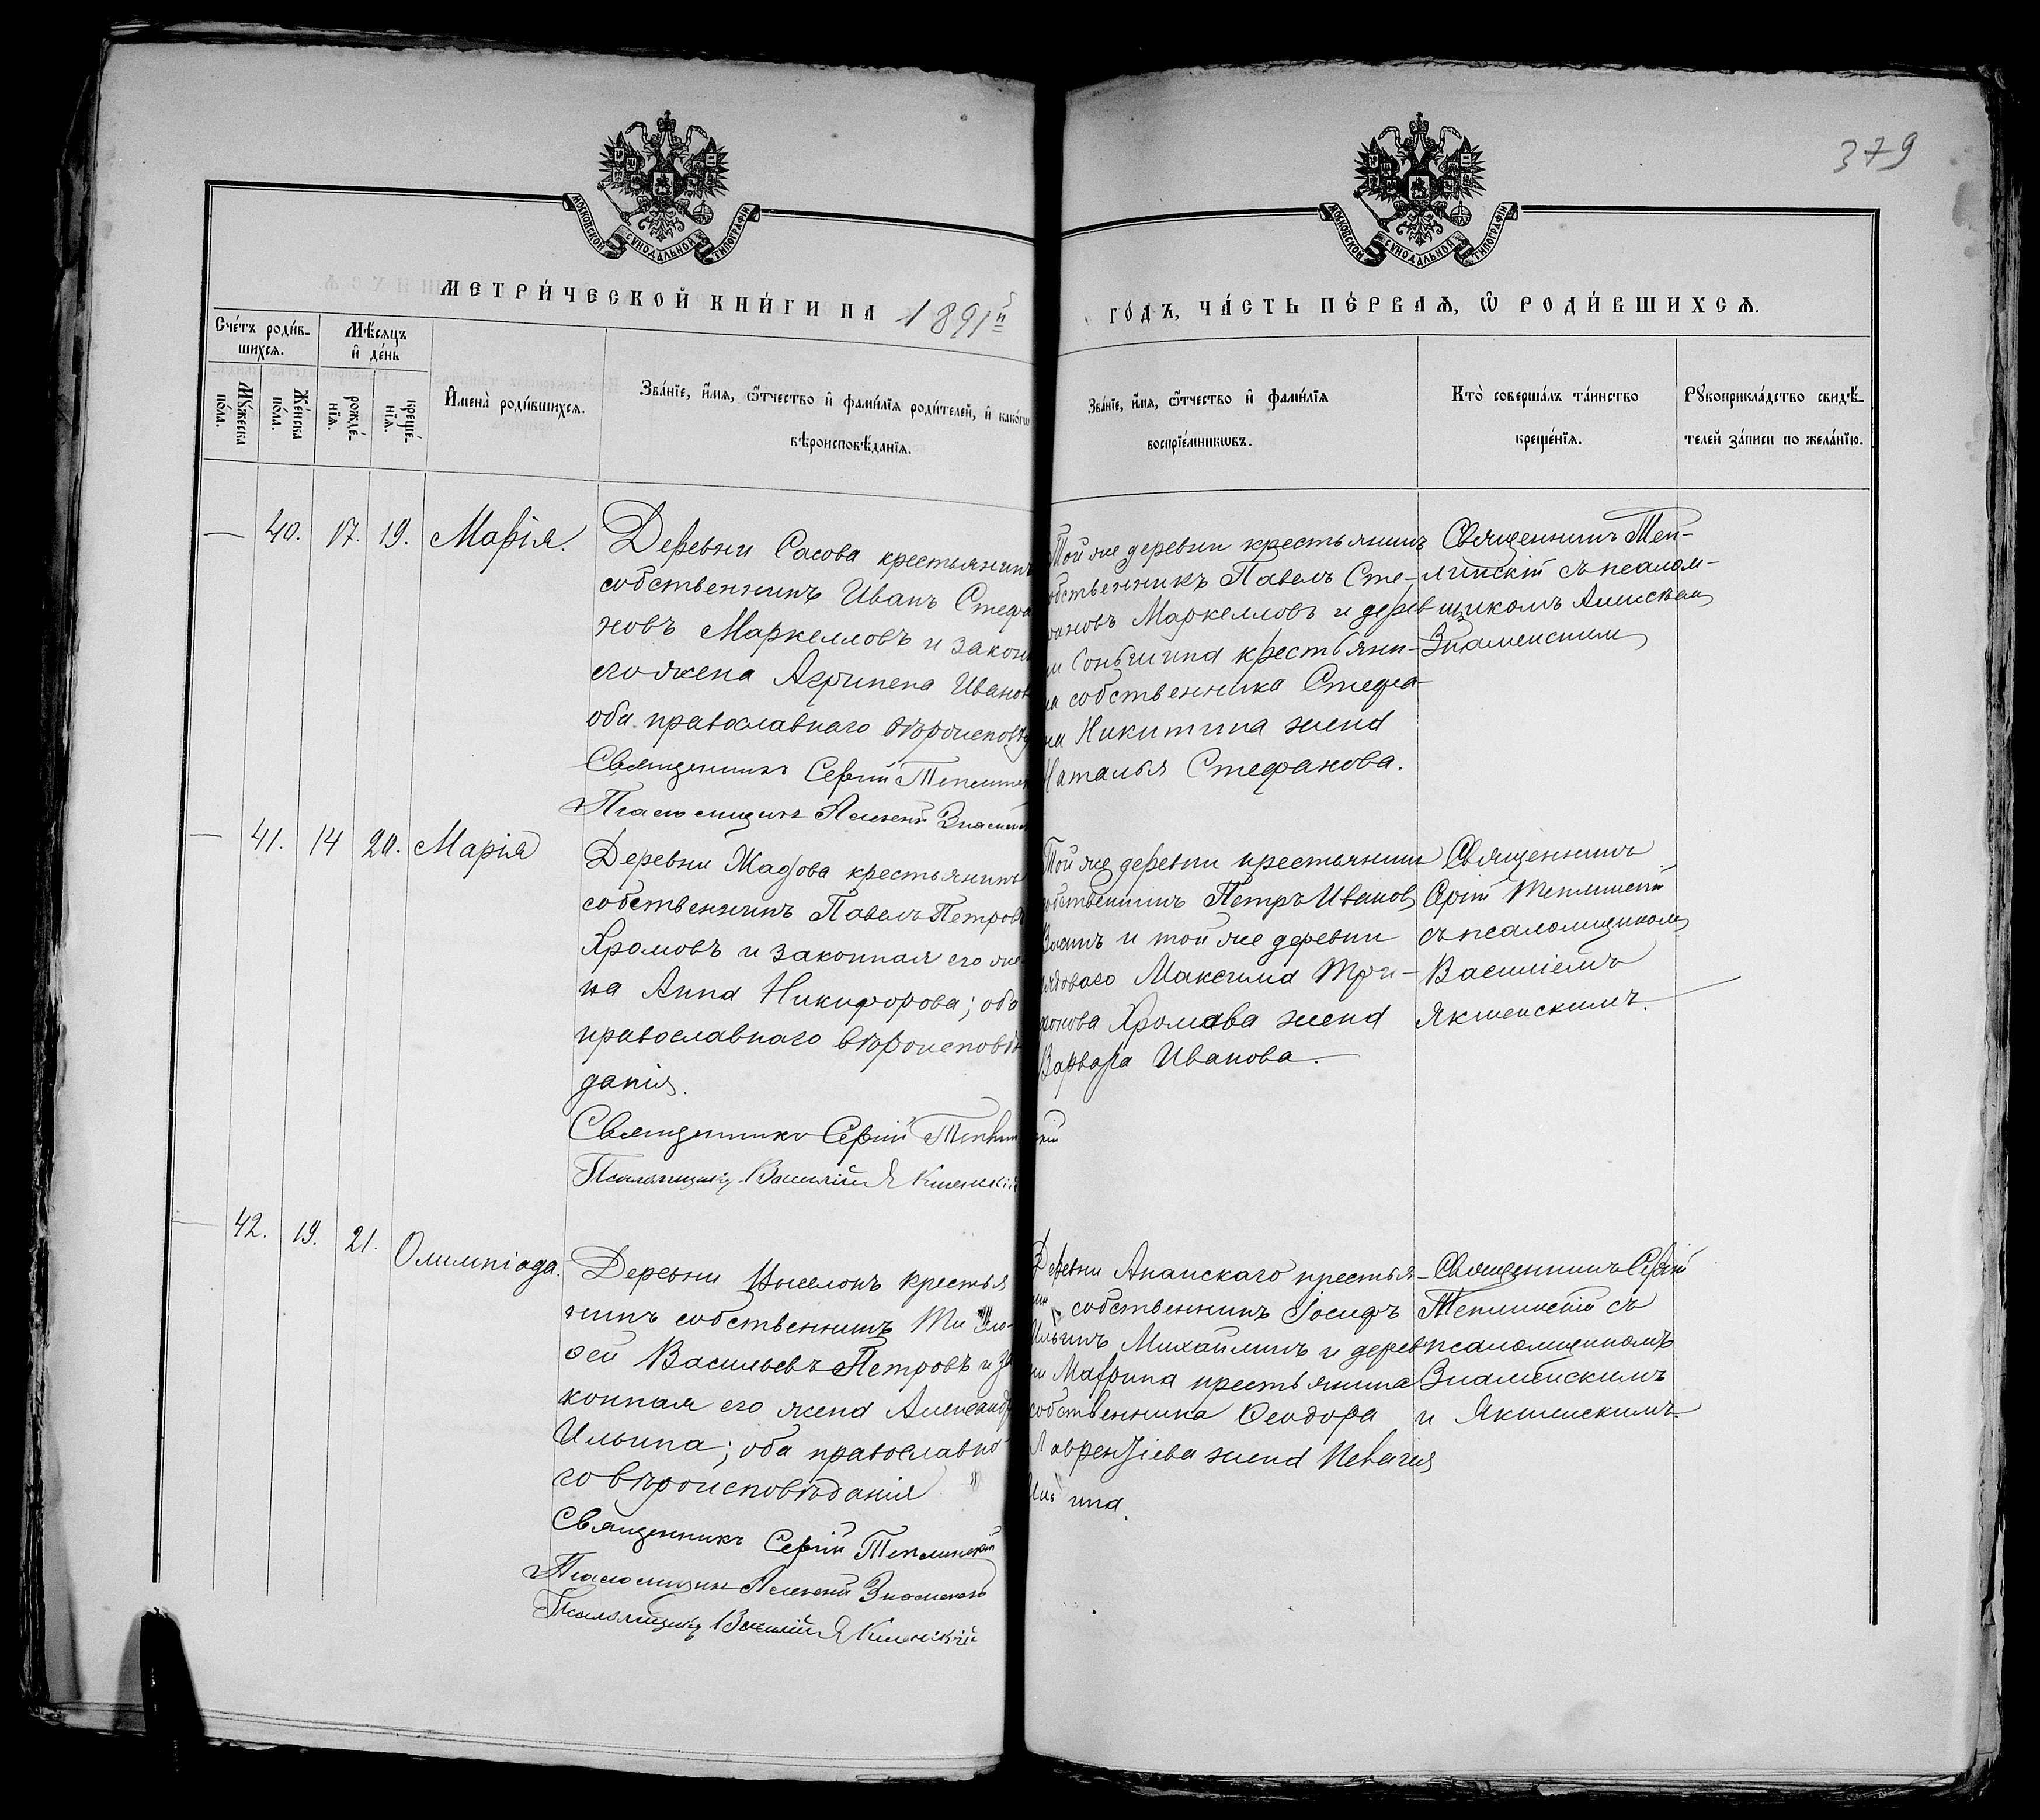 379
МОСКОВСКОЙ СѴНОДАЛЬНОЙ ТИПОГРАФІИ
МОСКОВСКОЙ СѴНОДАЛЬНОЙ ТИПОГРАФІИ
МЕТРИ́ЧЕСКОЙ КНИ́ГИ НА 1891й
ГО́ДЪ, ЧА́СТЬ ПЕ́РВАѦ, Ѽ РОДИ́ВШИХСѦ.
Сче́тъ роди́в-
шихсѧ.
Мꙋ́жеска
по́ла.
Же́нска
по́ла.
Мѣ́сѧцъ
и҆ де́нь
рожде́-
нїѧ.
креще́-
нїѧ.
И҆мена̀ роди́вшихсѧ.
Зва́нїе, и҆́мѧ, ѻ҆́тчество и҆ фами́лїѧ роди́телей, и҆ како́гѡ
вѣроисповѣ́данїѧ.
Зва́нїе, и҆́мѧ, ѻ҆́тчество и҆ фами́лїѧ
воспрїе́мникѡвъ.
Кто̀ соверша́лъ та́инство
креще́нїѧ.
Рꙋкоприкла́дство свидѣ́-
телей за́писи по жела́нїю.
— 40. 17. 19. Марія.
Деревни Сасова крестьянинъ
собственникъ Иванъ Стефа
новъ Маркелловъ и закон
его жена Агрипена Иванов
оба православнаго вѣроисповѣд
Священникъ Сергій Теплинск
Псаломщикъ Алексей Знаменск
Той же деревни крестьянинъ
обственникъ Павелъ Сте-
фановъ Маркелловъ и дерев
ни крестьяни-
на собственника Стефа-
на Никитина жена
Наталья Стефанова.
Священникъ Теп-
линскій съ псалом-
щикомъ Алексѣем
Знаменским
— 41. 14 20. Марія
Деревни крестьянинъ
собственникъ Павелъ Петровъ
Хромовъ и законная его же-
на Анна Никифорова; оба
православнаго вѣроисповѣ
данія.
Священникъ Сергій Теплинскій
Псаломщикъ Василій Якшенскій
Той же деревни крестьянин
обственникъ Петръ Иванов
и той же деревни
рядоваго Максима Три-
фонова Хромова жена
Варвара Иванова.
Священникъ
Сергій Теплинскій
съ псаломщиком
Василіемъ
Якшенскимъ.
— 42. 19. 21. Олимпіада.
Деревни крестья
нинъ собственникъ Тимо-
фей Васильевъ Петровъ и за
конная его жена Александр
Ильина; оба православна-
го вѣроисповѣданія
Священникъ Сергій Теплинскій
Псаломщикъ Алексей Знаменскій
Псаломщикъ Василій Якшенскій
Деревни Апаискаго крестья-
нин собственникъ Іосифъ
Ильинъ Михайлинъ и дерев
ни Маврина крестьянина
собственника Ѳеодора
Лаврентіева жена Пелагия
Ильина.
Священникъ Сергій
Теплинскій съ
псаломщикомъ
Знаменскимъ
и Якшенскимъ